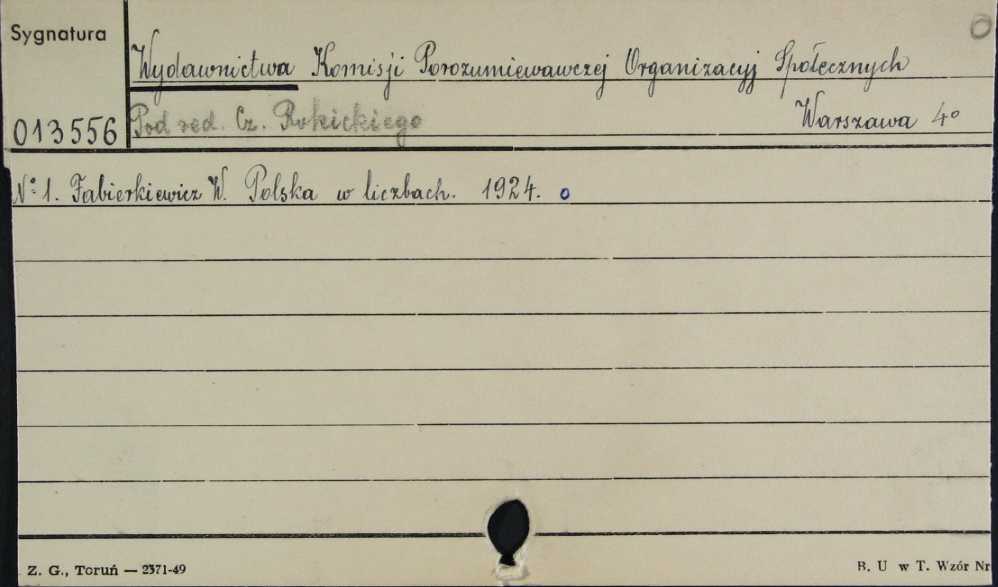 Sygnatura
O
Wydawnictwa Komisji Porozumiewawczej Organizacyj Społecznych
013556 Pod red. Cz. Rokickiego Warszawa 4°
№ 1. Fabierkiewicz W. Polska w liczbach. 1924. o
Z. G., Toruń — 2371-49 B. U w T. Wzór Nr